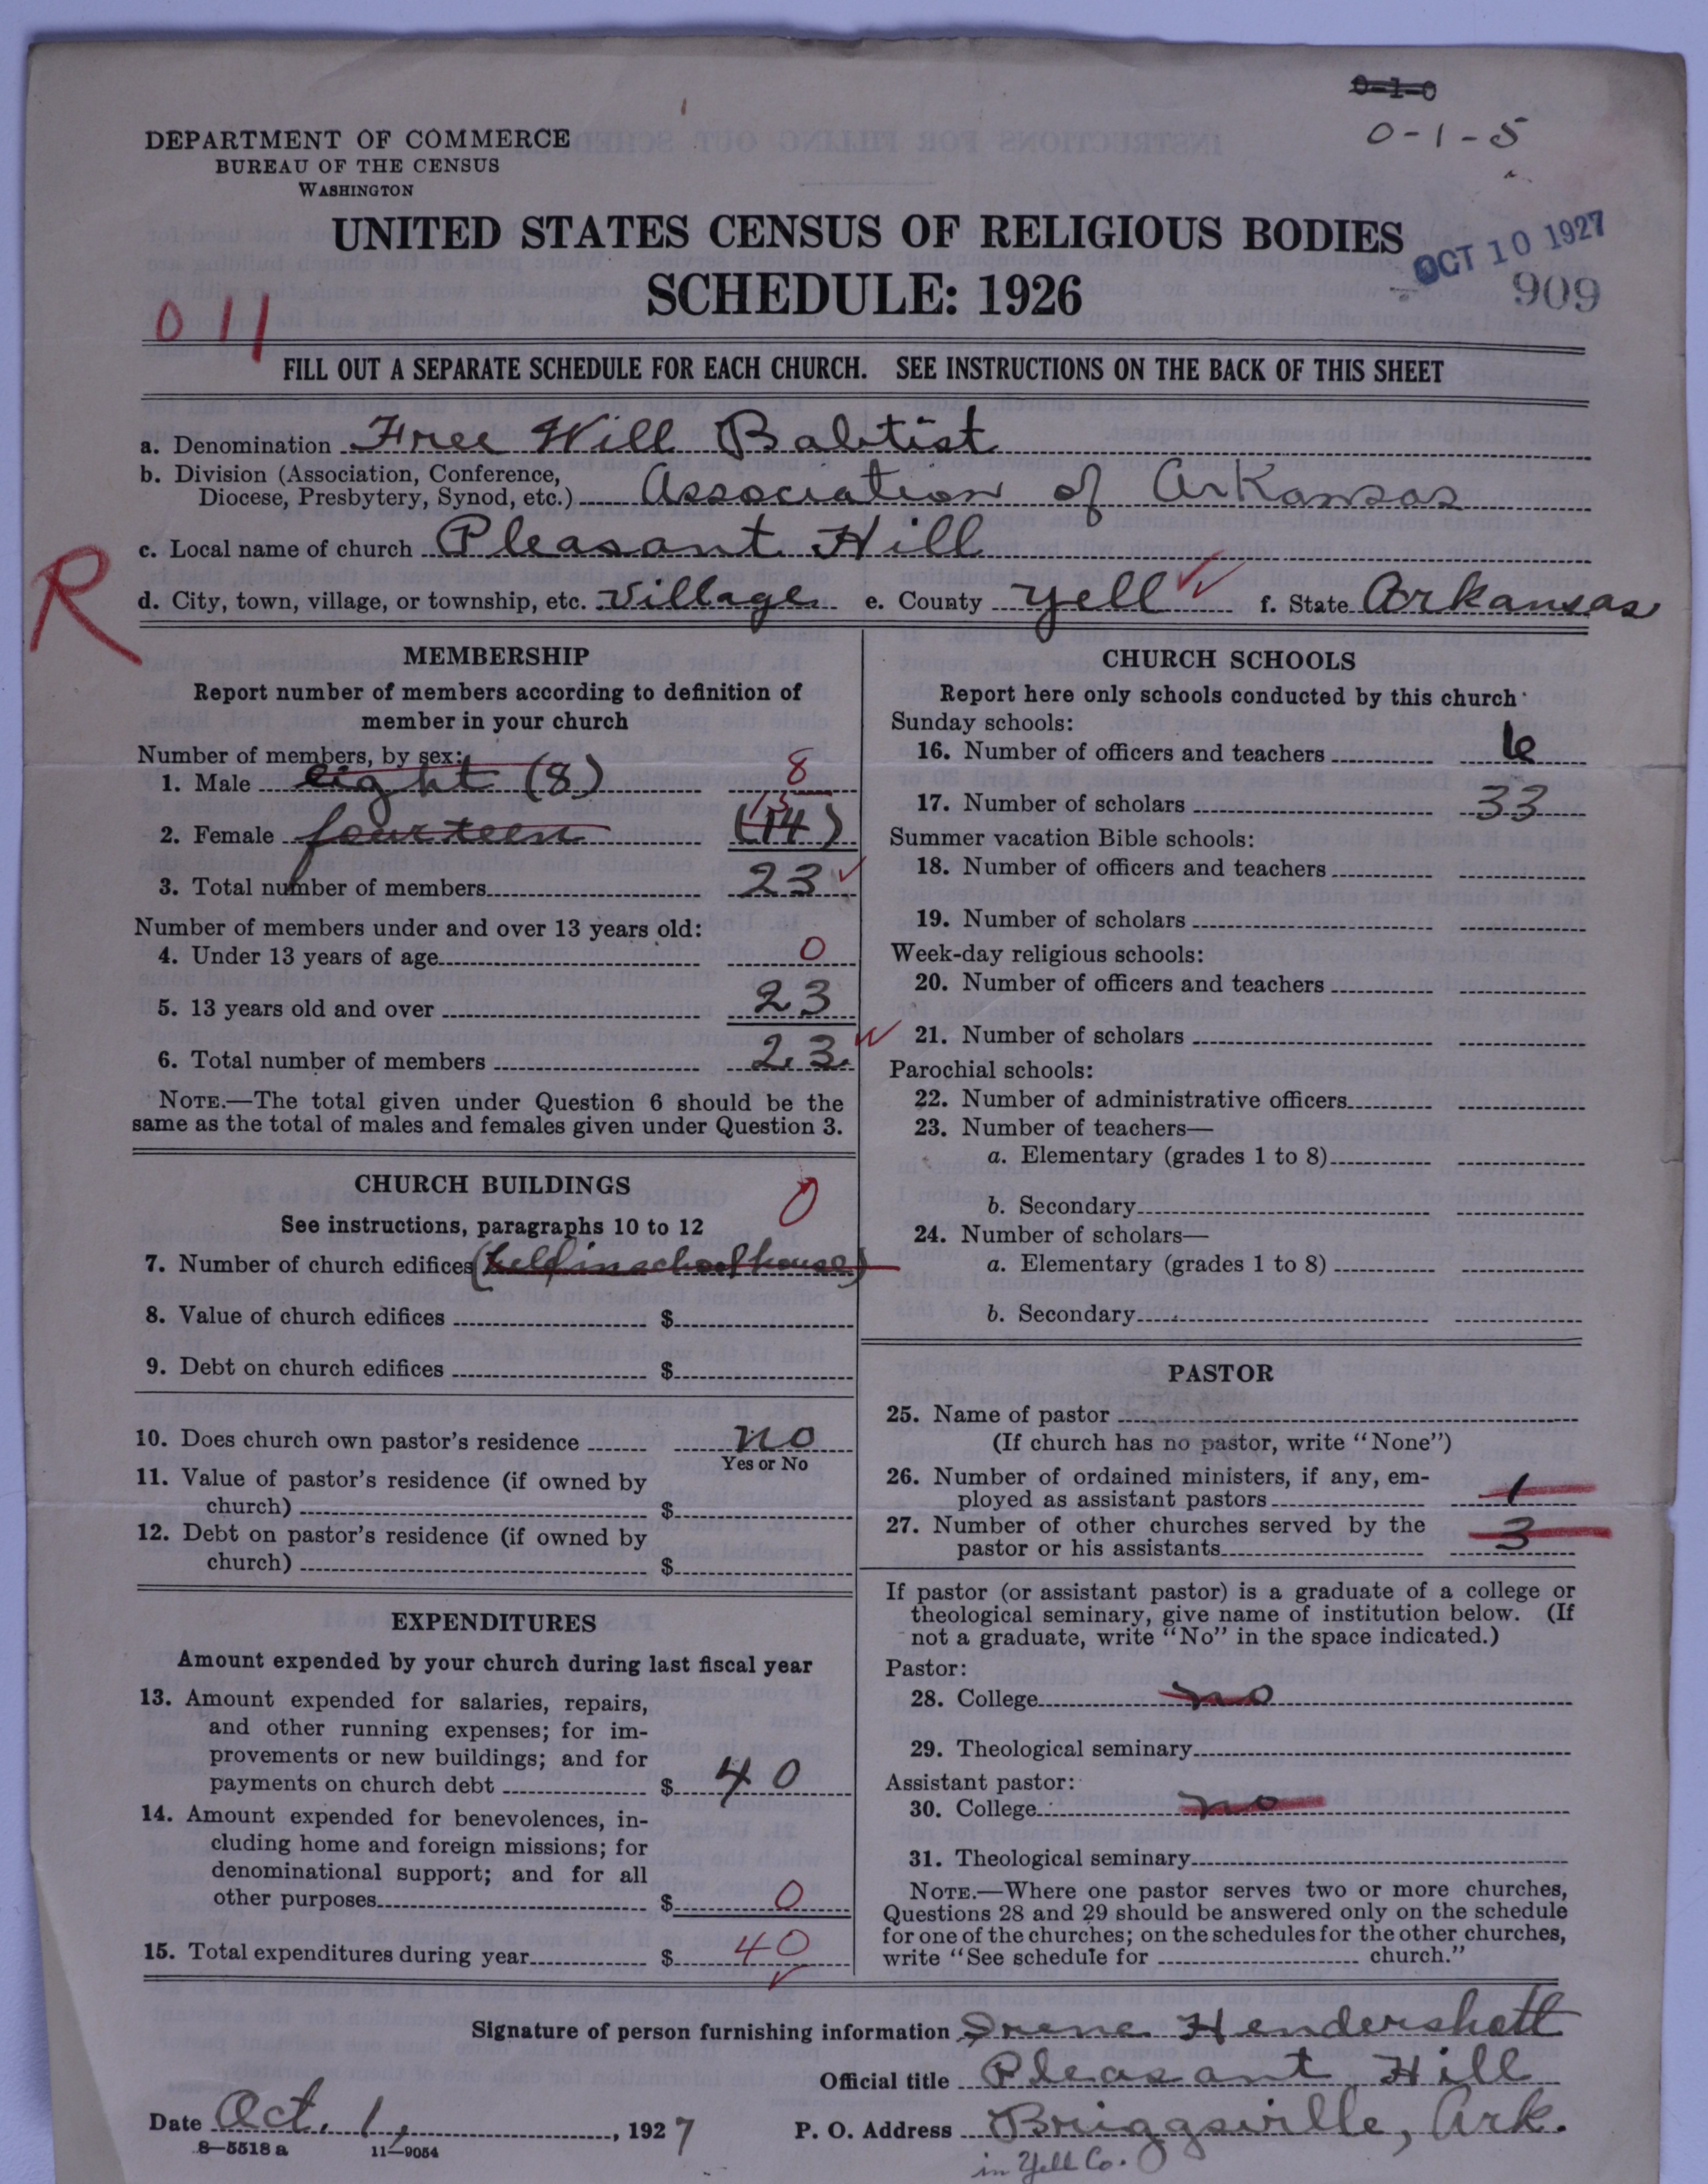 0-1-0
0-1-5
DEPARTMENT OF COMMERCE
BUREAU OF THE CENSUS
WASHINGTON
UNITED STATES CENSUS OF RELIGIOUS BODIES
SCHEDULE: 1926
OCT 10 1927
909
011
FILL OUT A SEPARATE SCHEDULE FOR EACH CHURCH. SEE INSTRUCTIONS ON THE BACK OF THIS SHEET
a. Denomination Free Will Babtist
b. Division (Association, Conference,
Diocese, Presbytery, Synod, etc.) Association of Arkansas
c. Local name of church Pleasant Hill
R
d. City, town, village, or township, etc. Village e. County Yell f. State Arkansas
MEMBERSHIP
Report number of members according to definition of
member in your church
Number of members, by sex:
1. Male eight (8) 8
2. Female fourteen (14) 15
3. Total number of members 23
Number of members under and over 13 years old:
4. Under 13 years of age 0
5. 13 years old and over 23
6. Total number of members 23
NOTE.—The total given under Question 6 should be the
same as the total of males and females given under Question 3.
CHURCH BUILDINGS
See instructions, paragraphs 10 to 12
0
7. Number of church edifices (held in school house)
8. Value of church edifices $
9. Debt on church edifices $
10. Does church own pastor's residence no
Yes or No
11. Value of pastor's residence (if owned by
church) $
12. Debt on pastor's residence (if owned by
church) $
EXPENDITURES
Amount expended by your church during last fiscal year
13. Amount expended for salaries, repairs,
and other running expenses; for im-
provements or new buildings; and for
payments on church debt $ 40
14. Amount expended for benevolences, in-
cluding home and foreign missions; for
denominational support; and for all
other purposes $ 0
15. Total expenditures during year $ 40
CHURCH SCHOOLS
Report here only schools conducted by this church
Sunday schools:
16. Number of officers and teachers 6
17. Number of scholars 33
Summer vacation Bible schools:
18. Number of officers and teachers
19. Number of scholars
Week-day religious schools:
20. Number of officers and teachers
21. Number of scholars
Parochial schools:
22. Number of administrative officers
23. Number of teachers—
a. Elementary (grades 1 to 8)
b. Secondary
24. Number of scholars—
a. Elementary (grades 1 to 8)
b. Secondary
PASTOR
25. Name of pastor
(If church has no pastor, write "None")
26. Number of ordained ministers, if any, em-
ployed as assistant pastors 1
27. Number of other churches served by the
pastor or his assistants 3
If pastor (or assistant pastor) is a graduate of a college or
theological seminary, give name of institution below. (If
not a graduate, write "No" in the space indicated.)
Pastor:
28. College no
29. Theological seminary
Assistant pastor:
30. College no
31. Theological seminary
NOTE.—Where one pastor serves two or more churches,
Questions 28 and 29 should be answered only on the schedule
for one of the churches; on the schedules for the other churches,
write "See schedule for church."
Signature of person furnishing information Irene Hendershott
Official title Pleasant Hill
Date Oct. 1, 1927 P. O. Address Briggsville, Ark.
8—5518 a 11—9054
in Yell Co.